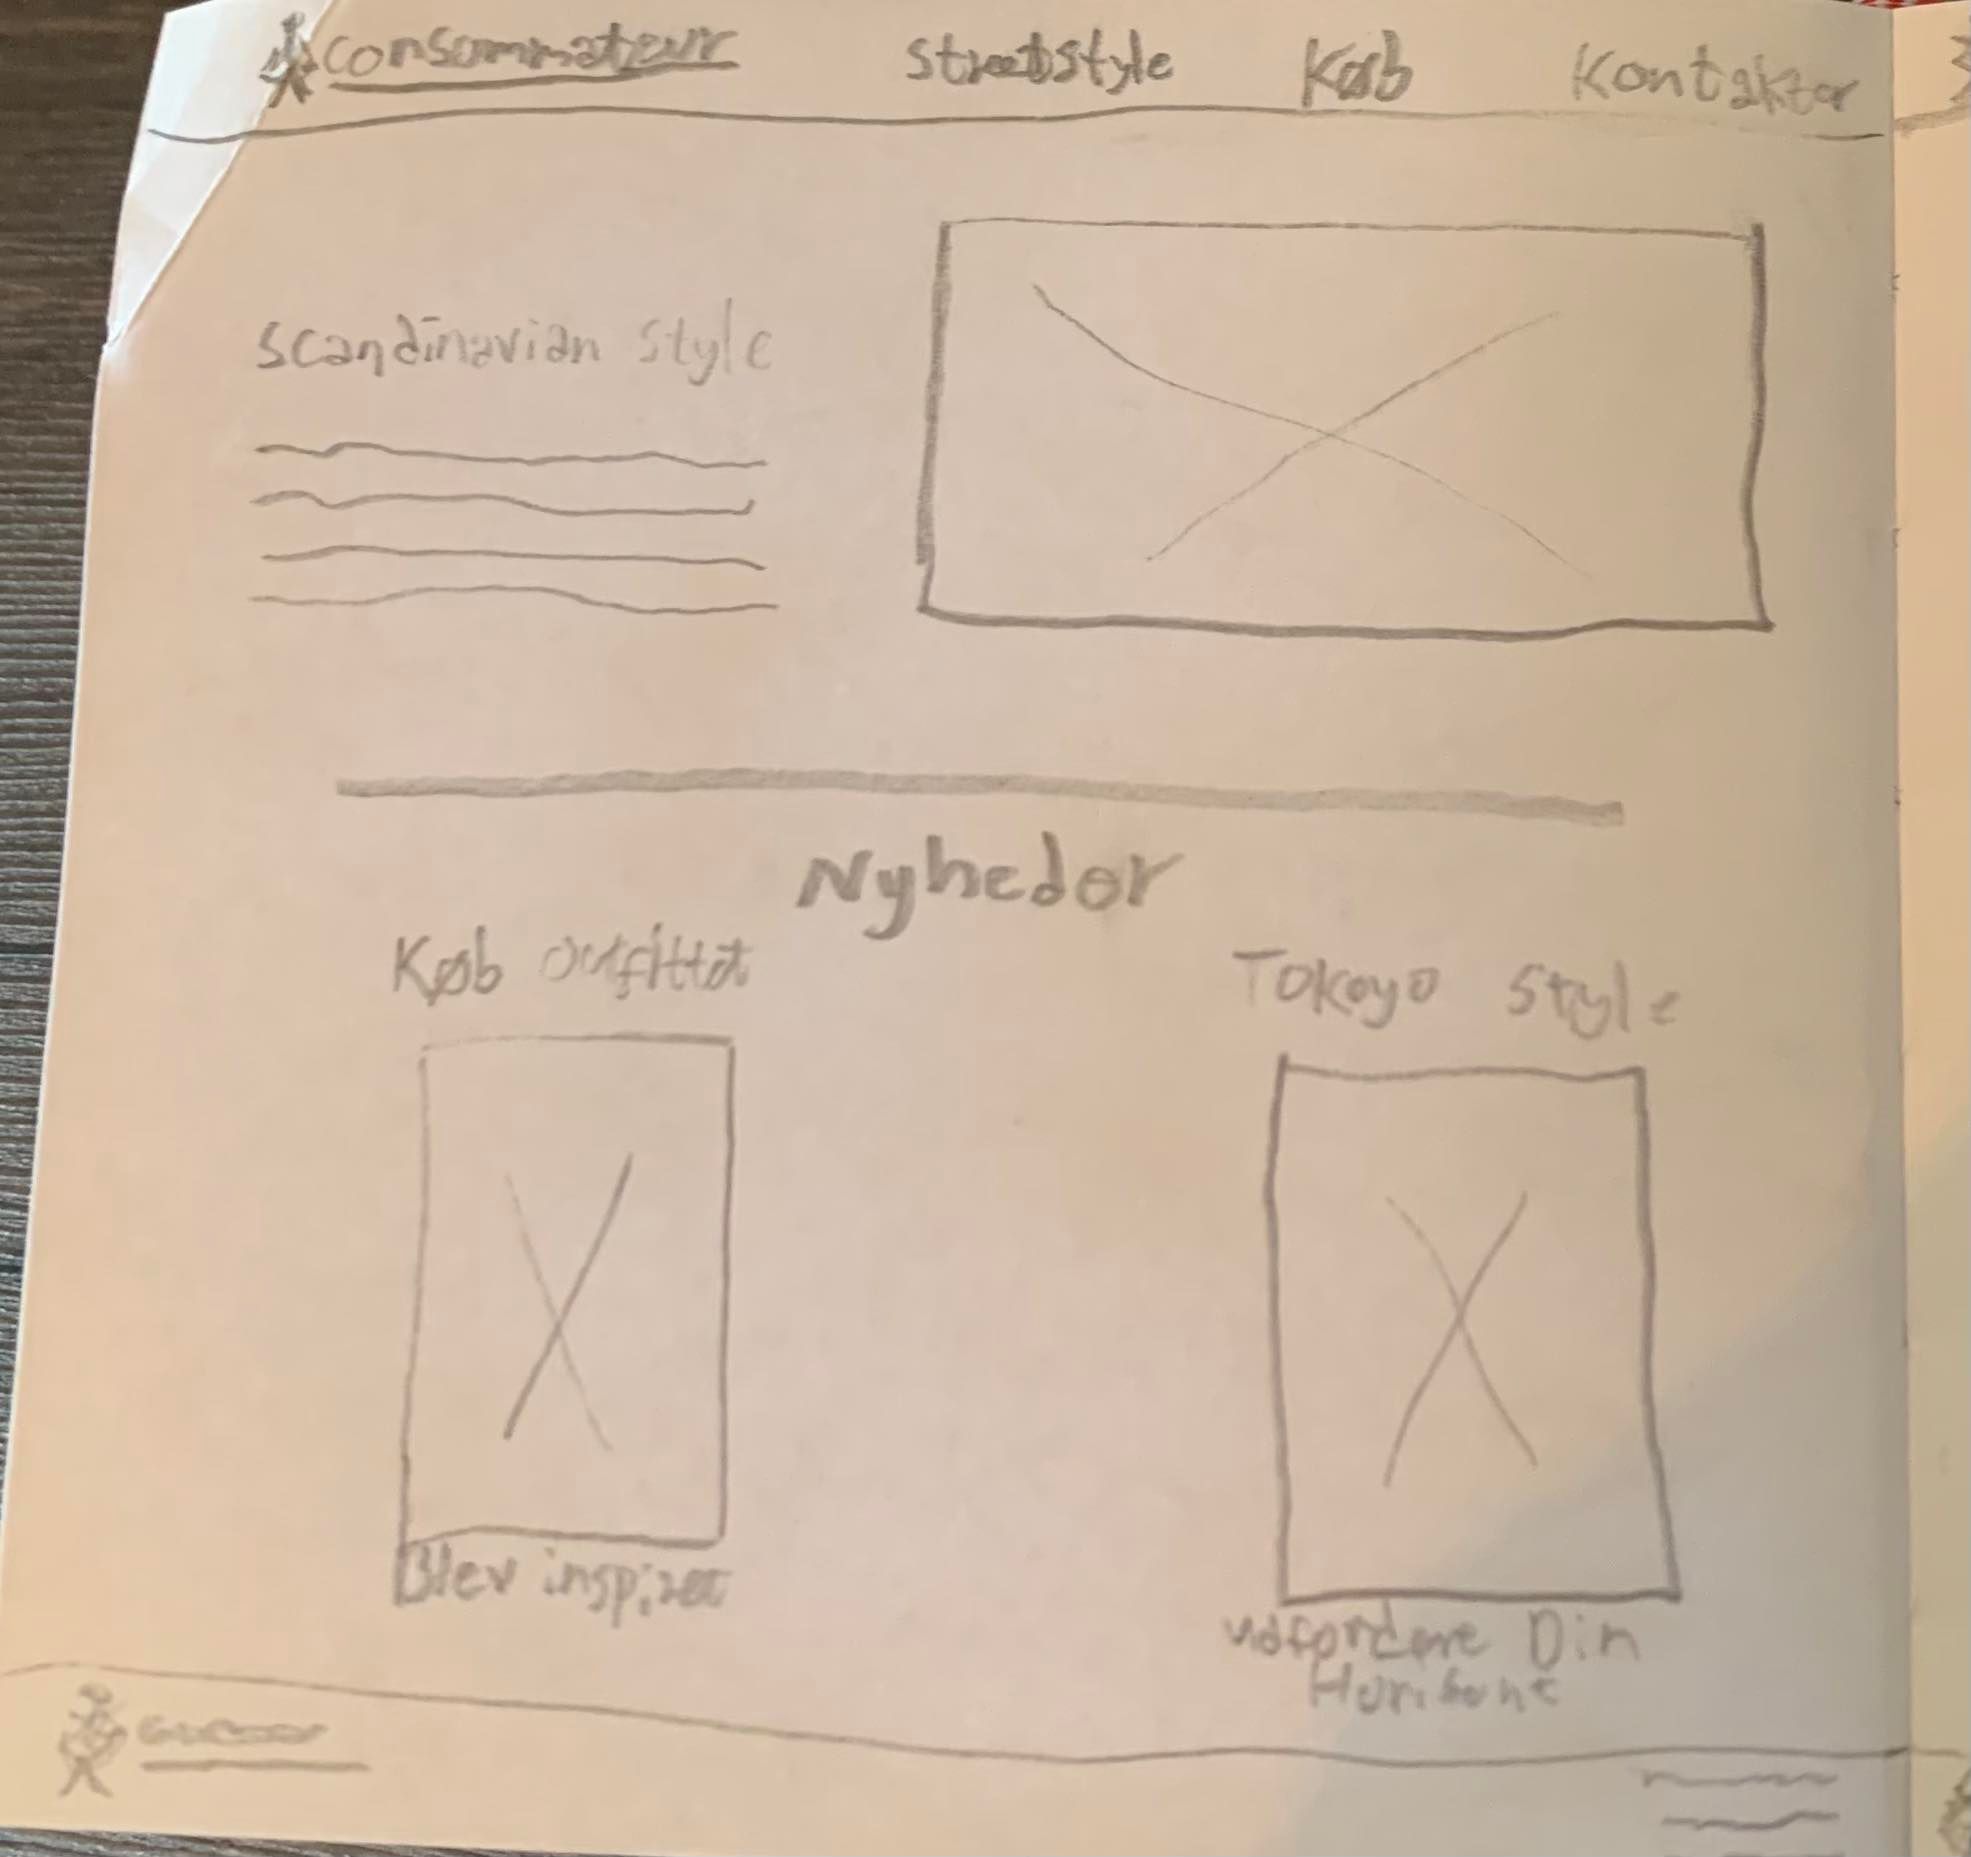 Consommateur Streetstyle Køb Kontakter
Scandinavian Style
Nyheder
Køb outfittet Tokoyo Style
Blev inspiret
Udfordere Din
Horisont